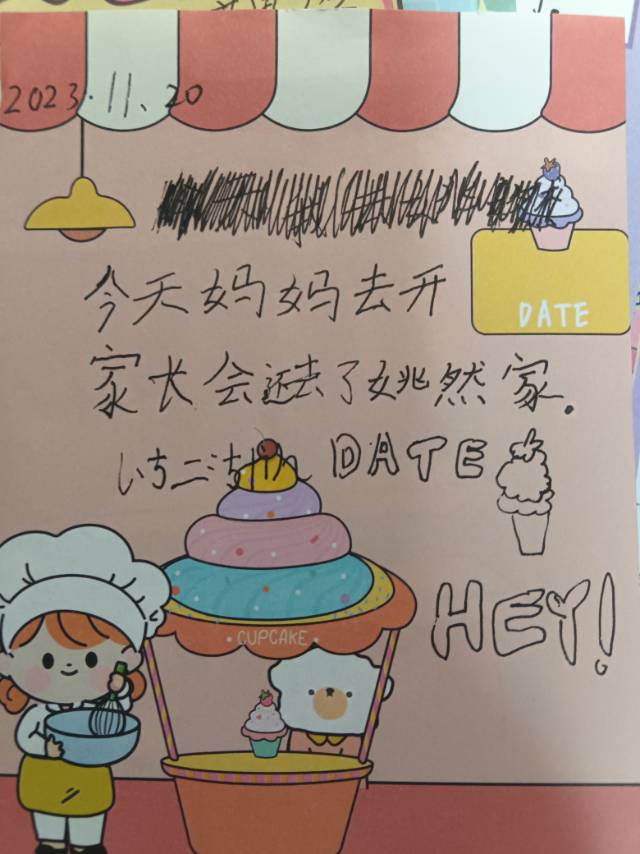 2023.11、20
今天妈妈去开
DATE
家长会还去了姚然家.
いちごち
DATE
HEY!
CUPCAKE